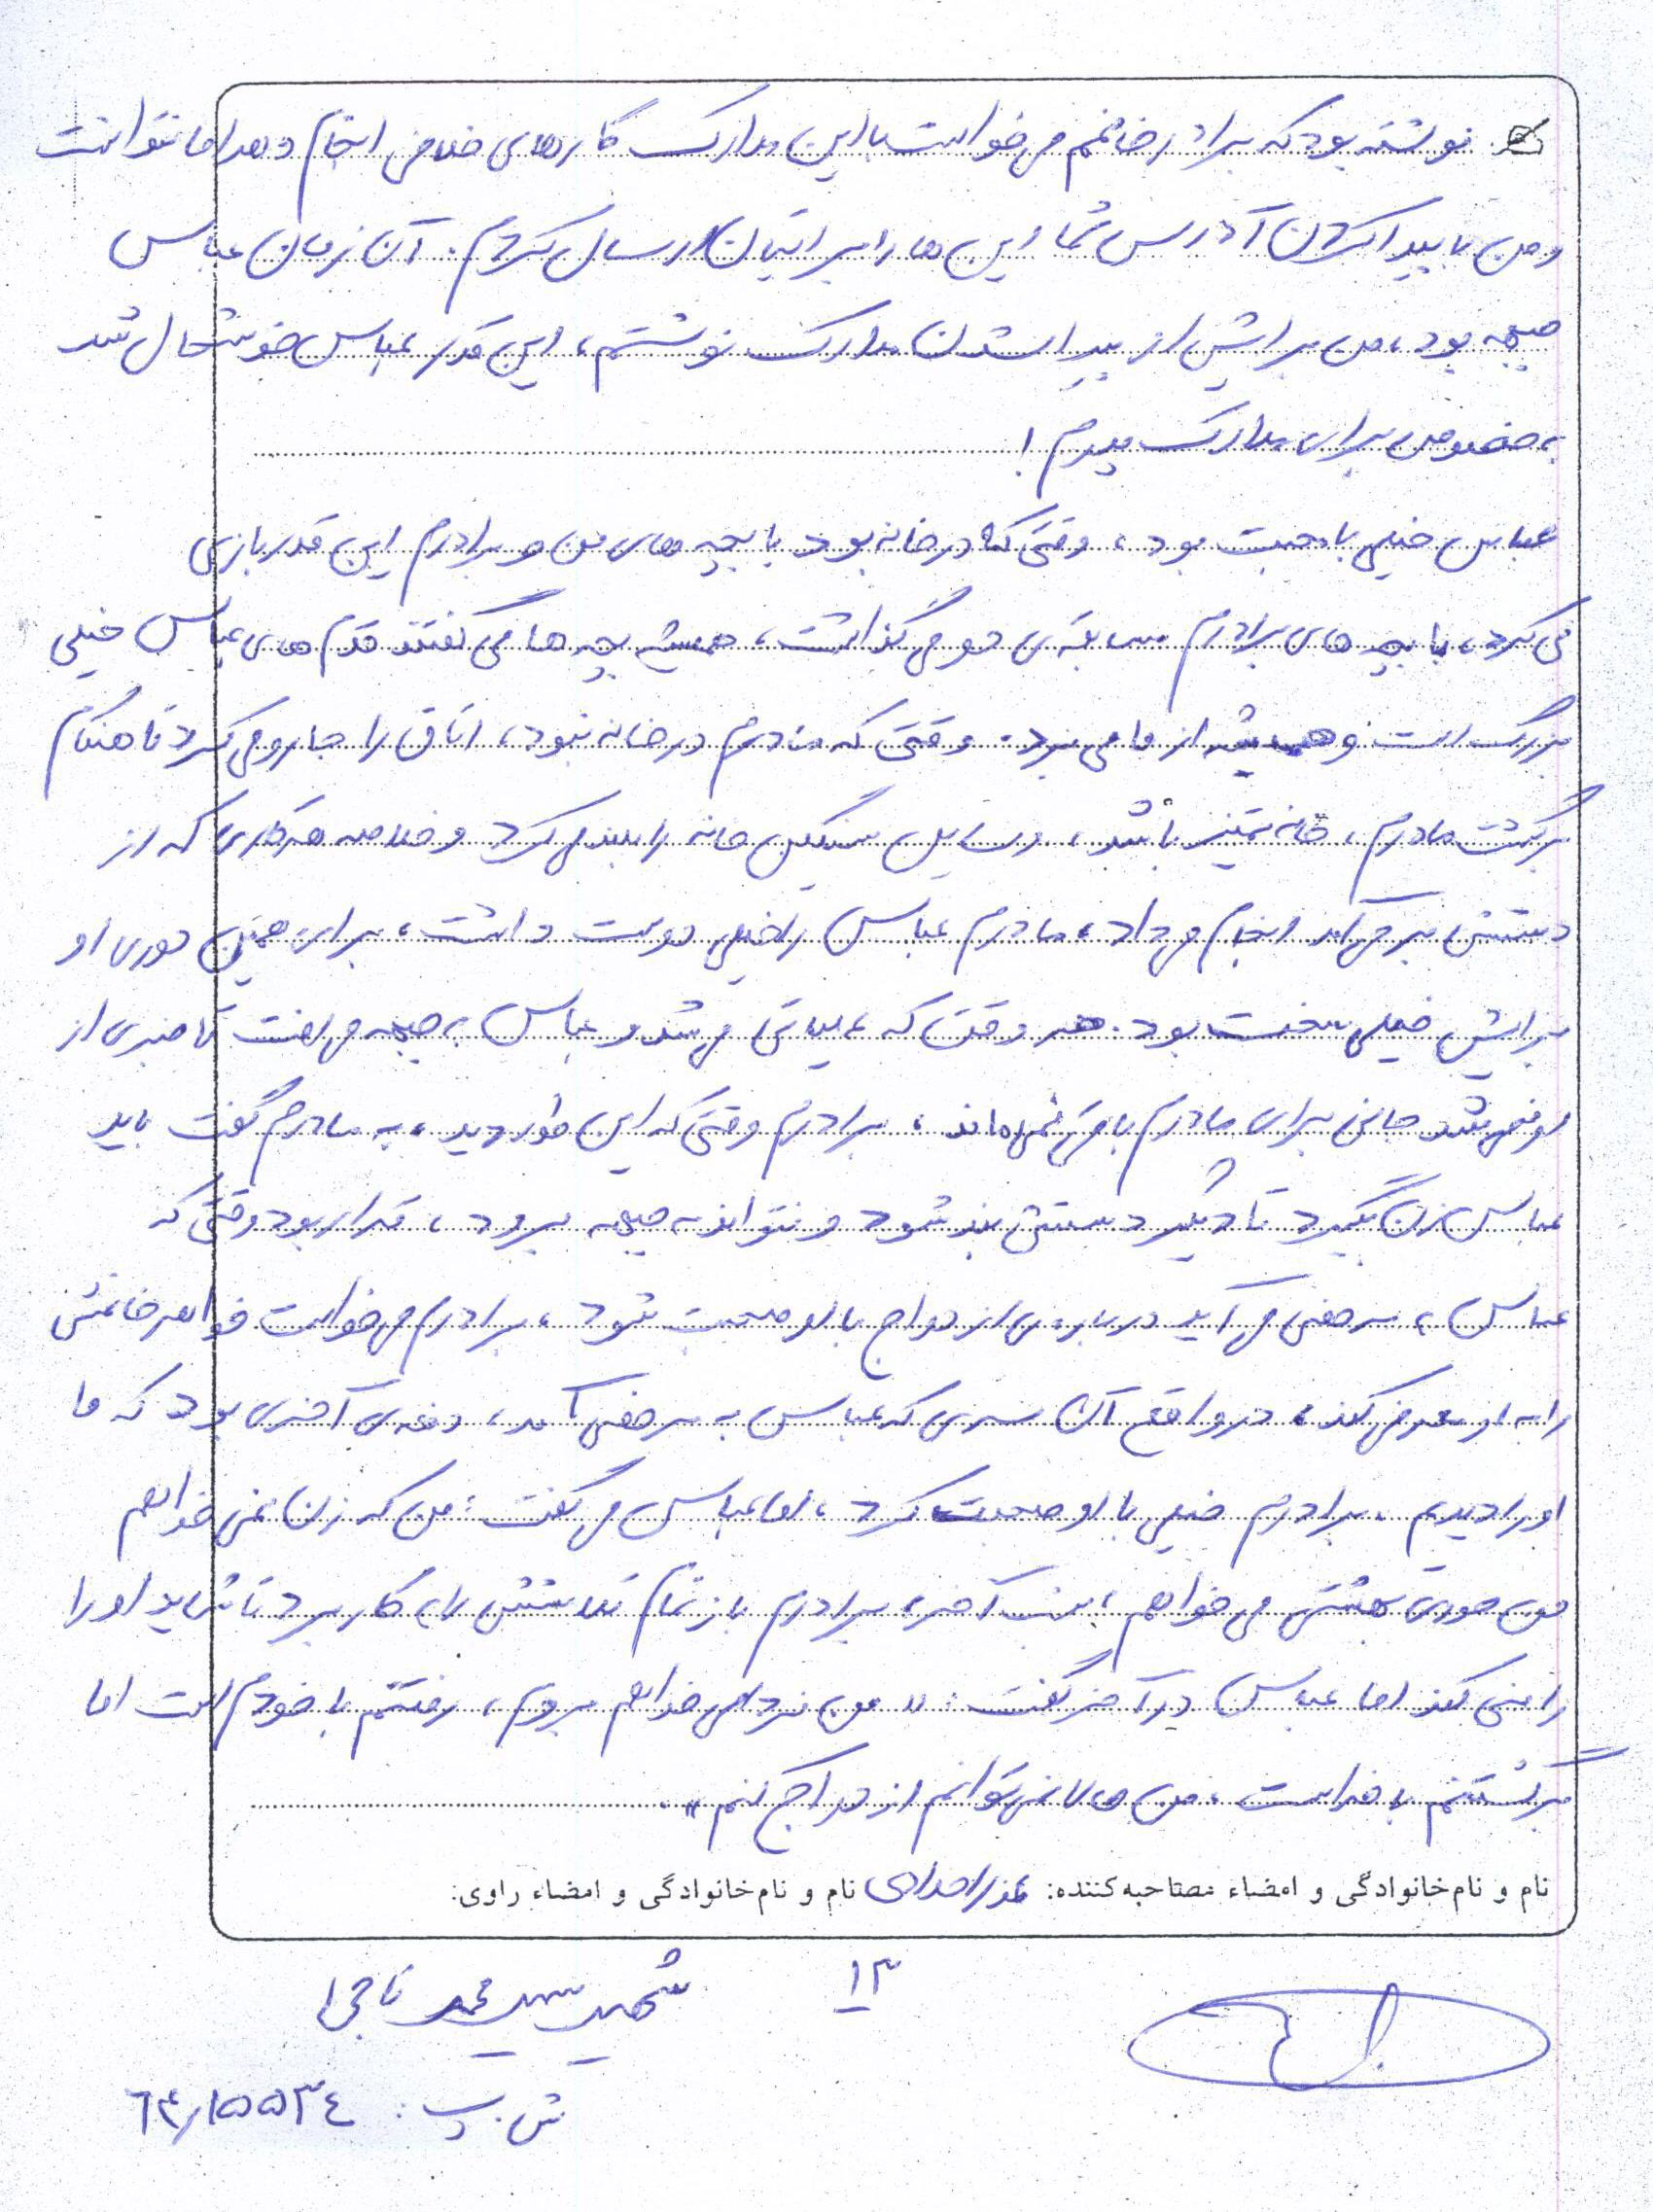 نوشته بود که برادر خانمم می‌خواست با این مدارک کارهای خلافی انجام دهد اما نتوانست
و من با پیدا کردن آدرس شما این‌ها را برایتان ارسال کردم. آن زمان عباس
جبهه بود، من برایش از پیدا شدن مدارک نوشتم، این قدر عباس خوشحال شد
به خصوص برای مدارک پدرم!
عباس خیلی با محبت بود، وقتی که در خانه بود با بچه‌های من و برادرم این قدر بازی
می‌کرد، با بچه‌های برادرم مسابقه‌ی دو می‌گذاشت، همیشه بچه‌ها می‌گفتند قدم‌های عباس خیلی
بزرگ است و همیشه از ما می‌برد. وقتی که مادرم در خانه نبود، اتاق را جارو می‌کرد تا هنگام
برگشت مادرم، خانه تمیز باشد، وسایل سنگین خانه را بلند می‌کرد و خلاصه هر کاری که از
دستش بر می‌آمد انجام می‌داد، مادرم عباس را خیلی دوست داشت، برای همین دوری او
برایش خیلی سخت بود. هر وقت که عملیاتی می‌شد و عباس به جبهه می‌رفت تا خبری از
او نمی‌شد جانی برای مادرم باقی نمی‌ماند، برادرم وقتی که این طور دید، به مادرم گفت باید
عباس زن بگیرد تا دیگر دستش بند شود و نتواند به جبهه برود، قرار بود وقتی که
عباس به مرخصی می‌آید درباره‌ی ازدواج با او صحبت شود، برادرم می‌خواست خواهر خانمش
را به او معرفی کند، در واقع آن سری که عباس به مرخصی آمد، دفعه‌ی آخری بود که ما
او را دیدیم. برادرم خیلی با او صحبت کرد، اما عباس می‌گفت: من که زن نمی‌خواهم
من حوری بهشتی می‌خواهم، شب آخر، برادرم باز تمام تلاشش را به کار برد تا شاید او را
راضی کند اما عباس در آخر گفت: « من فردا می‌خواهم بروم، رفتنم با خودم است اما
برگشتنم با خداست، من حالا نمی‌توانم ازدواج کنم».
نام و نام‌خانوادگی و امضاء مصاحبه‌کننده: عذرا امدادی نام و نام‌خانوادگی و امضاء راوی:
۱۳
شهید سید محمد ناجی
ش. پ: ۶۳/۱۵۵۳۴